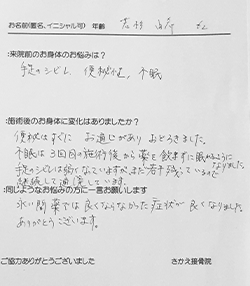 お名前(匿名、イニシャル可) 年齢
:来院前のお身体のお悩みは?
手足のシビレ、便秘症、不眠
:施術後のお身体に変化はありましたか?
便秘はすぐに お通じがあり おどろきました。
不眠は3回目の施術後から薬を飲まずに眠れるように
なりました。
手足のシビレは弱くなっていますが、まだ若干残っているので
継続して通院しています。
:同じようなお悩みの方に一言お願いします
永い間薬では良くならなかった症状が良くなりました。
ありがとうございます。
ご協力ありがとうございました さかえ接骨院